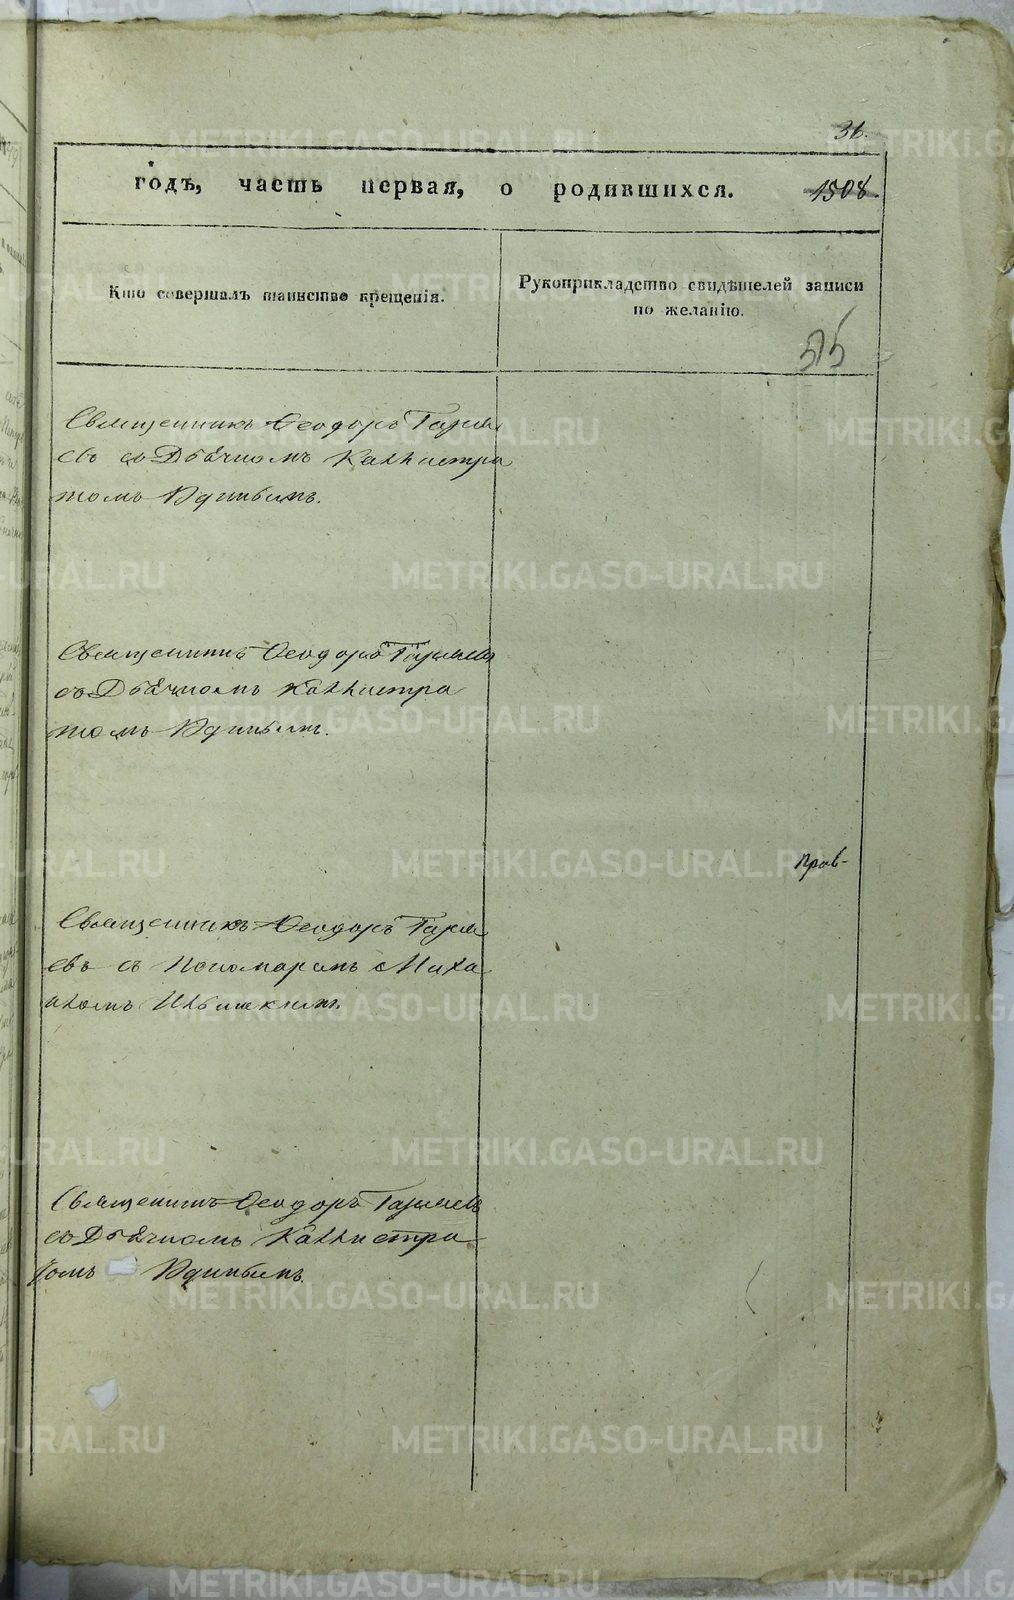 36.
годъ, часть первая, о родившихся. 1508
Кто совершалъ таинство крещенія.
Рукоприкладство свидѣтелей записи
по желанію.
515
Священникъ Ѳеодоръ
евъ со Дьячкомъ Каллистра
томъ Удинцевымъ.
Священникъ Ѳеодоръ
съ Дьячкомъ Каллистра
томъ Удинцевымъ.
Прав-
Священникъ Ѳеодоръ
евъ съ Пономаремъ Миха
иломъ
Священникъ Ѳеодоръ
со Дьячкомъ Каллистра
томъ Удинцевымъ.
METRIKI.GASO-URAL.RU